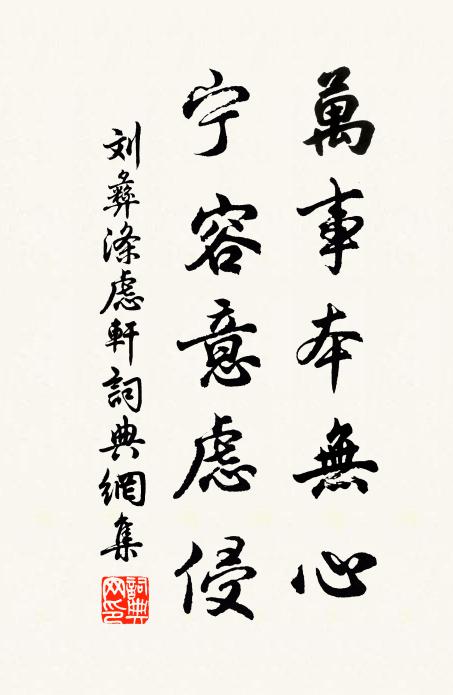 萬事本無心
宁容意慮侵
刘彝滌慮軒詞典網集
詞典网印